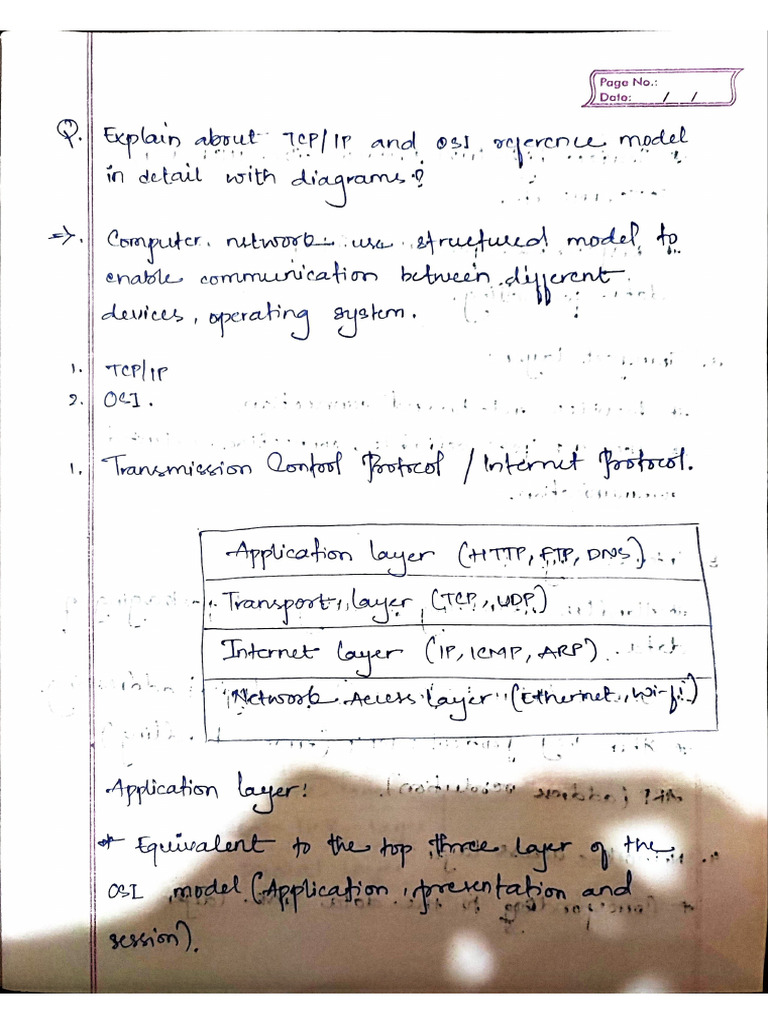 Page No.:
Date: / /
Q. Explain about TCP/IP and OSI reference model
in detail with diagrams?
=>. Computer network use structured model to
enable communication between different
devices, operating system.
1. TCP/IP
2. OSI.
1. Transmission Control Protocol / Internet Protocol.
Application layer (HTTP, FTP, DNS)
Transport layer (TCP, UDP)
Internet layer (IP, ICMP, ARP)
Network Access Layer (Ethernet, Wi-fi)
Application layer:
* Equivalent to the top three layer of the
OSI model (Application, presentation and
session).